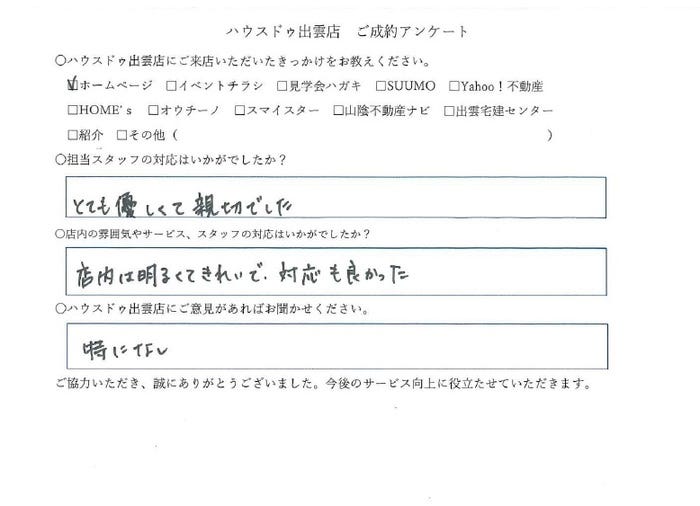 ハウスドゥ出雲店　ご成約アンケート
〇ハウスドゥ出雲店にご来店いただいたきっかけをお教えください。
☑ホームページ　□イベントチラシ　□見学会ハガキ　□SUUMO　□Yahoo！不動産
□HOME's　□オウチーノ　□スマイスター　□山陰不動産ナビ　□出雲宅建センター
□紹介　□その他（　　　　　　　　　　　　　　　　　　　　　　）
〇担当スタッフの対応はいかがでしたか？
とても優しくて親切でした
〇店内の雰囲気やサービス、スタッフの対応はいかがでしたか？
店内は明るくてきれいで、対応も良かった
〇ハウスドゥ出雲店にご意見があればお聞かせください。
特になし
ご協力いただき、誠にありがとうございました。今後のサービス向上に役立たせていただきます。